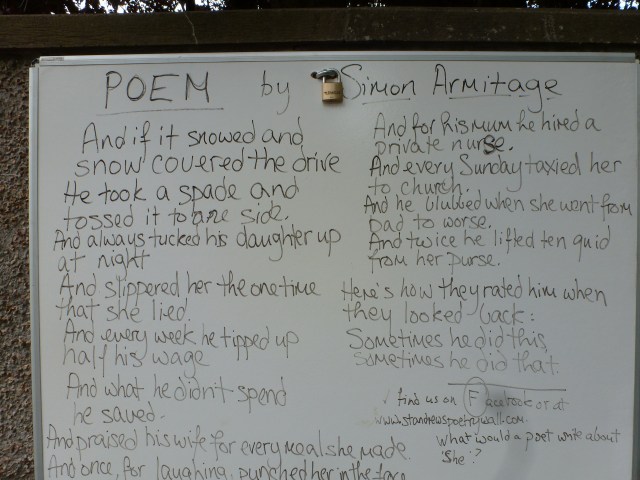 POEM by Simon Armitage
And if it snowed and
snow covered the drive
He took a spade and
tossed it to one side.
And always tucked his daughter up
at night
And slippered her the one time
that she lied.
And every week he tipped up
half his wage
And what he didn't spend
he saved.
And praised his wife for every meal she made.
And once, for laughing, punched her in the face
And for his mum he hired a
private nurse.
And every Sunday taxied her
to church.
And he blubbed when she went from
bad to worse.
And twice he lifted ten quid
from her purse.
Here's how they rated him when
they looked back:
Sometimes he did this,
sometimes he did that
find us on Facebook or at
www.standrewspoetrywall.com.
what would a poet write about
'She'?